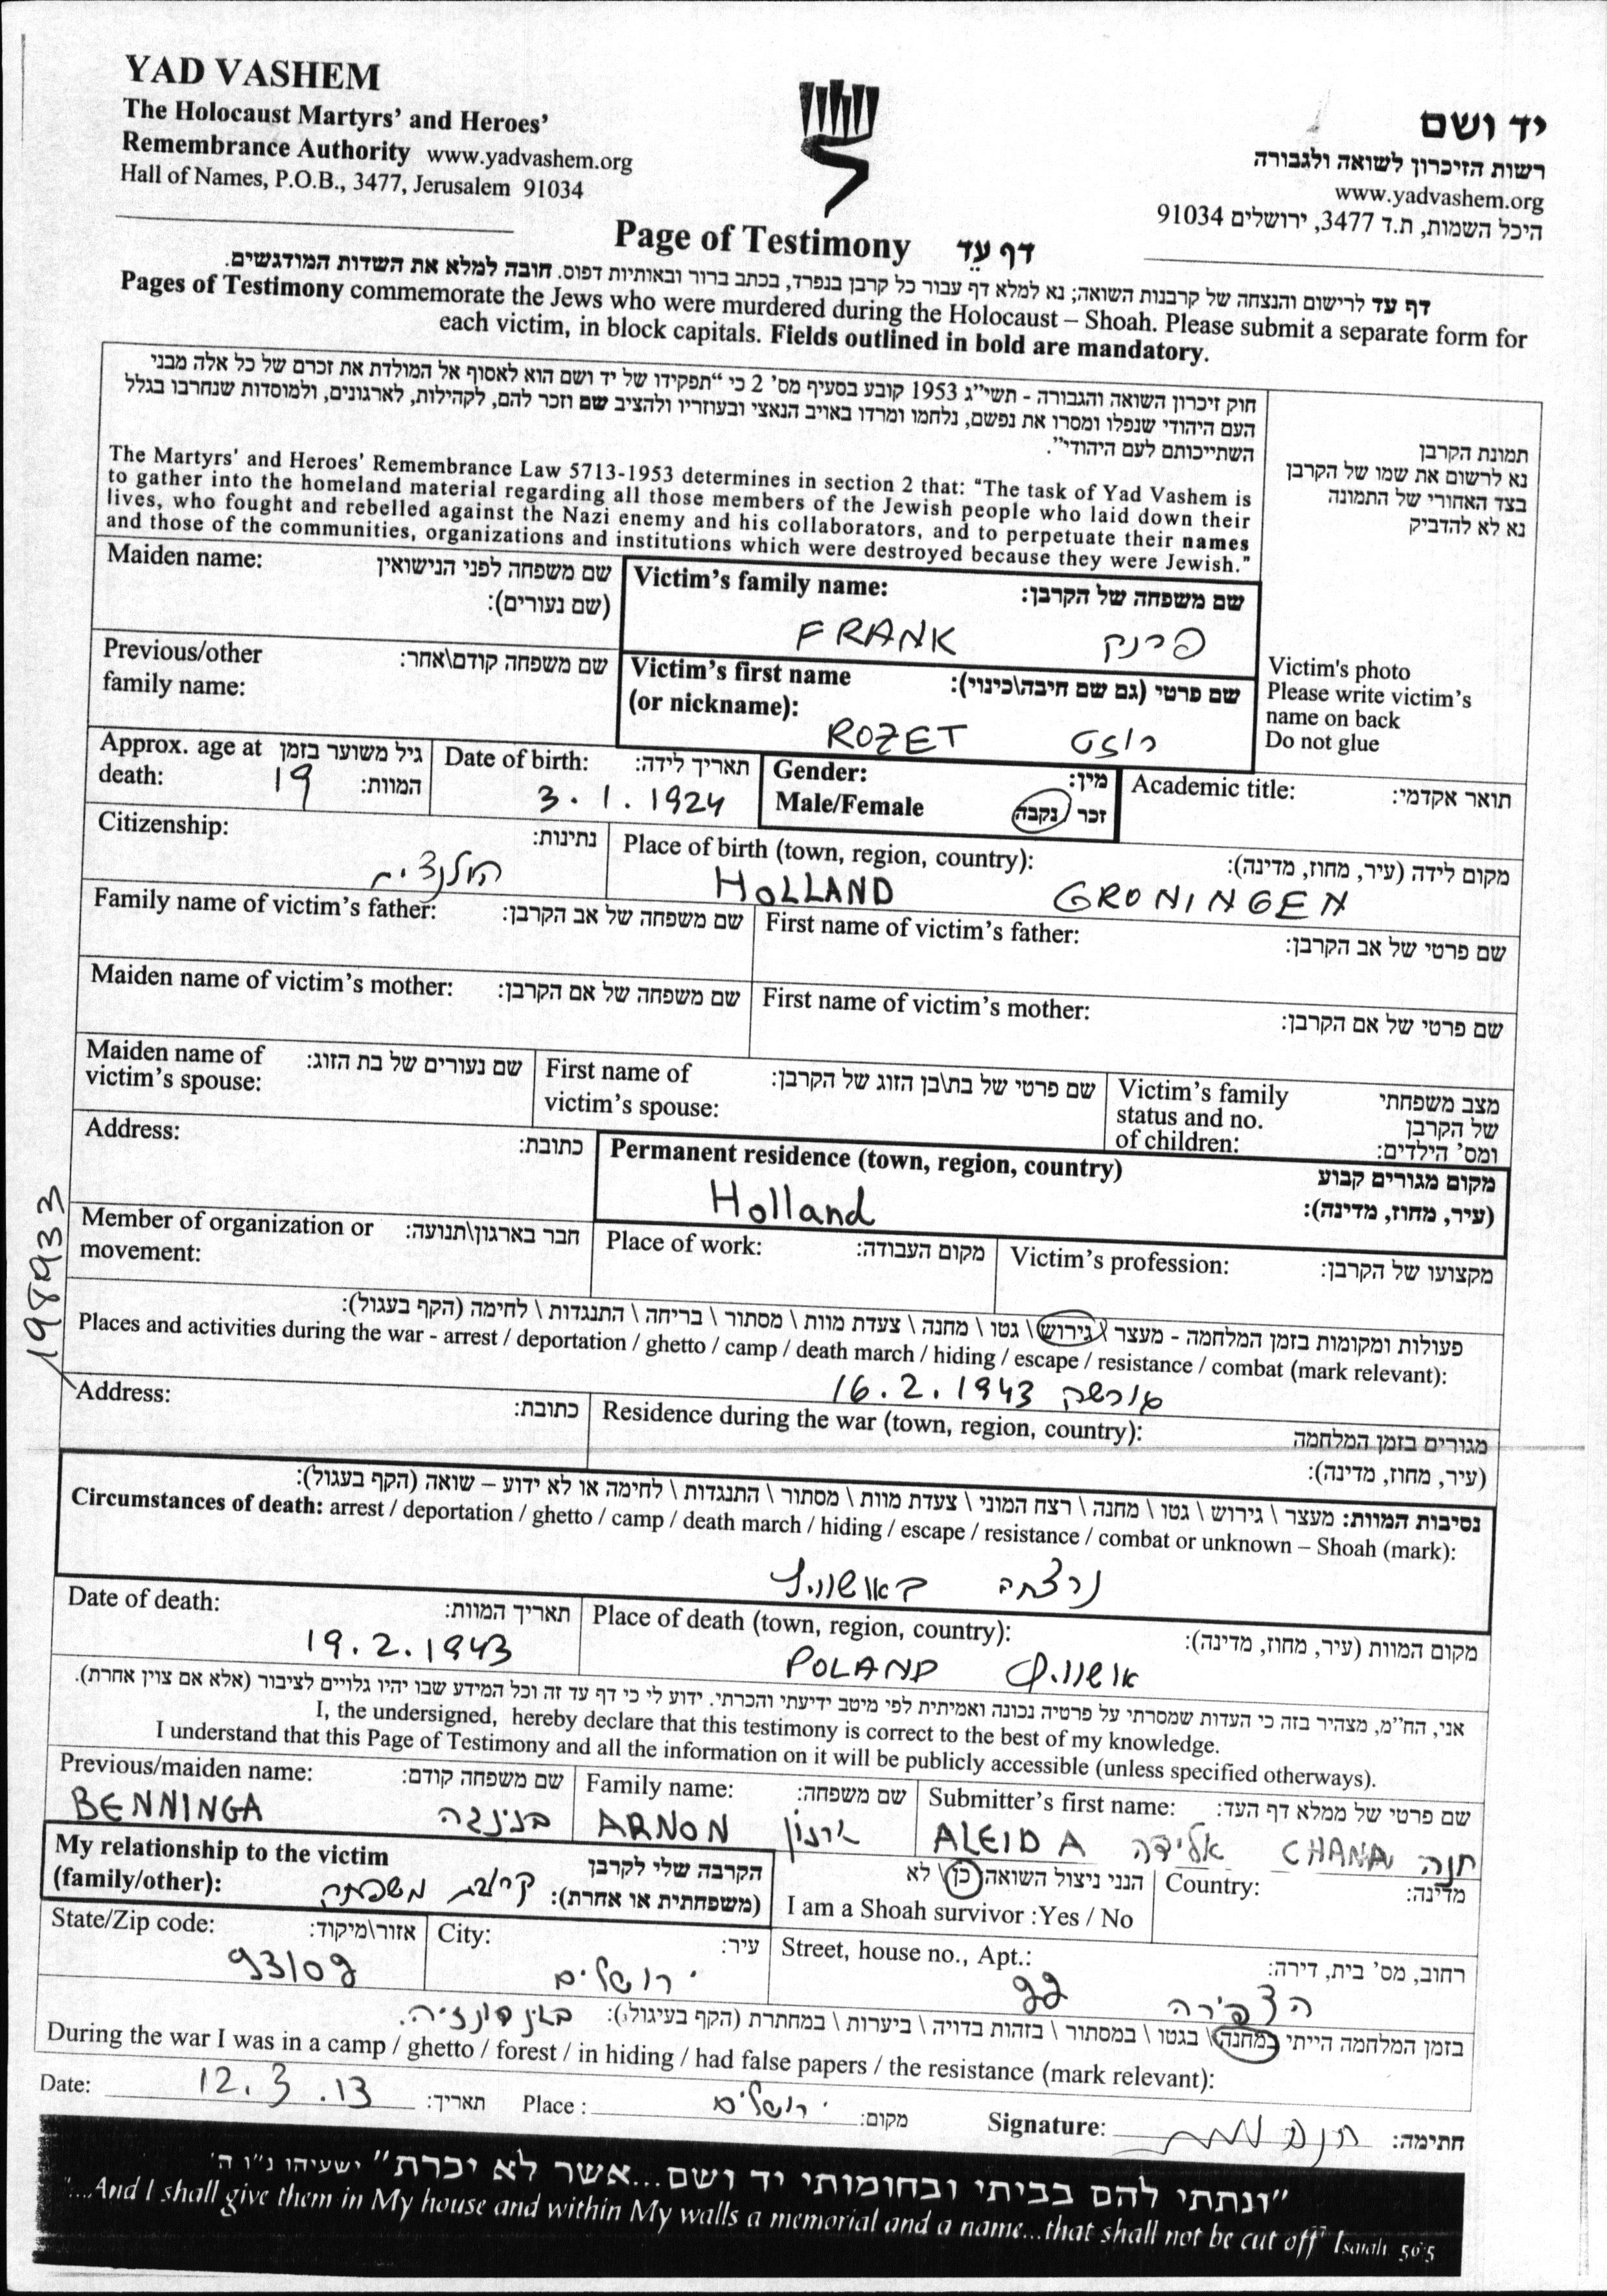 YAD VASHEM
The Holocaust Martyrs' and Heroes'
Remembrance Authority www.yadvashem.org
Hall of Names, P.O.B., 3477, Jerusalem 91034
יד ושם
רשות הזיכרון לשואה ולגבורה
www.yadvashem.org
היכל השמות, ת.ד 3477, ירושלים 91034
Page of Testimony דף עֵד
דף עד לרישום והנצחה של קרבנות השואה; נא למלא דף עבור כל קרבן בנפרד, בכתב ברור ובאותיות דפוס. חובה למלא את השדות המודגשים.
Pages of Testimony commemorate the Jews who were murdered during the Holocaust – Shoah. Please submit a separate form for
each victim, in block capitals. Fields outlined in bold are mandatory.
חוק זיכרון השואה והגבורה - תשי"ג 1953 קובע בסעיף מס' 2 כי "תפקידו של יד ושם הוא לאסוף אל המולדת את זכרם של כל אלה מבני
העם היהודי שנפלו ומסרו את נפשם, נלחמו ומרדו באויב הנאצי ובעוזריו ולהציב שם וזכר להם, לקהילות, לארגונים, ולמוסדות שנחרבו בגלל
השתייכותם לעם היהודי".
The Martyrs' and Heroes' Remembrance Law 5713-1953 determines in section 2 that: "The task of Yad Vashem is
to gather into the homeland material regarding all those members of the Jewish people who laid down their
lives, who fought and rebelled against the Nazi enemy and his collaborators, and to perpetuate their names
and those of the communities, organizations and institutions which were destroyed because they were Jewish."
תמונת הקרבן
נא לרשום את שמו של הקרבן
בצד האחורי של התמונה
נא לא להדביק
Victim's photo
Please write victim's
name on back
Do not glue
Maiden name: שם משפחה לפני הנישואין
(שם נעורים):
Victim's family name: שם משפחה של הקרבן:
FRANK פרנק
Previous/other שם משפחה קודם\אחר:
family name:
Victim's first name שם פרטי (גם שם חיבה\כינוי):
(or nickname):
ROZET רוזט
Approx. age at גיל משוער בזמן
death: 19 המוות:
Date of birth: תאריך לידה:
3.1.1924
Gender: מין:
Male/Female זכר / נקבה
Academic title: תואר אקדמי:
Citizenship: נתינות:
Place of birth (town, region, country): מקום לידה (עיר, מחוז, מדינה):
HOLLAND GRONINGEN
Family name of victim's father: שם משפחה של אב הקרבן:
First name of victim's father: שם פרטי של אב הקרבן:
Maiden name of victim's mother: שם משפחה של אם הקרבן:
First name of victim's mother: שם פרטי של אם הקרבן:
Maiden name of שם נעורים של בת הזוג:
victim's spouse:
First name of שם פרטי של בת\בן הזוג של הקרבן:
victim's spouse:
Victim's family מצב משפחתי
status and no. של הקרבן
of children: ומס' הילדים:
Address: כתובת:
Permanent residence (town, region, country) מקום מגורים קבוע
Holland (עיר, מחוז, מדינה):
198933
Member of organization or חבר בארגון\תנועה:
movement:
Place of work: מקום העבודה:
Victim's profession: מקצועו של הקרבן:
פעולות ומקומות בזמן המלחמה - מעצר \ גירוש \ גטו \ מחנה \ צעדת מוות \ מסתור \ בריחה \ התנגדות \ לחימה (הקף בעגול):
Places and activities during the war - arrest / deportation / ghetto / camp / death march / hiding / escape / resistance / combat (mark relevant):
16.2.1943 גורשה
Address: כתובת:
Residence during the war (town, region, country): מגורים בזמן המלחמה
(עיר, מחוז, מדינה):
נסיבות המוות: מעצר \ גירוש \ גטו \ מחנה \ רצח המוני \ צעדת מוות \ מסתור \ התנגדות \ לחימה או לא ידוע – שואה (הקף בעגול):
Circumstances of death: arrest / deportation / ghetto / camp / death march / hiding / escape / resistance / combat or unknown – Shoah (mark):
נרצחה באושוויץ
Date of death: תאריך המוות:
19.2.1943
Place of death (town, region, country): מקום המוות (עיר, מחוז, מדינה):
POLAND
אני, הח"מ, מצהיר בזה כי העדות שמסרתי על פרטיה נכונה ואמיתית לפי מיטב ידיעתי והכרתי. ידוע לי כי דף עד זה וכל המידע שבו יהיו גלויים לציבור (אלא אם צוין אחרת).
I, the undersigned, hereby declare that this testimony is correct to the best of my knowledge.
I understand that this Page of Testimony and all the information on it will be publicly accessible (unless specified otherways).
Previous/maiden name: שם משפחה קודם:
BENNINGA בנינגה
Family name: שם משפחה:
ARNON ארנון
Submitter's first name: שם פרטי של ממלא דף העד:
ALEIDA אלידה CHANA חנה
My relationship to the victim הקרבה שלי לקרבן
(family/other): קרובת משפחה (משפחתית או אחרת):
הנני ניצול השואה כן \ לא
I am a Shoah survivor :Yes / No
Country: מדינה:
State/Zip code: אזור\מיקוד:
93109
City: עיר:
ירושלים
Street, house no., Apt.: רחוב, מס' בית, דירה:
הצפירה 22
בזמן המלחמה הייתי במחנה \ בגטו \ במסתור \ בזהות בדויה \ ביערות \ במחתרת (הקף בעיגול): באינדונזיה.
During the war I was in a camp / ghetto / forest / in hiding / had false papers / the resistance (mark relevant):
Date: 12.3.13 תאריך:
Place : ירושלים מקום:
Signature: חתימה:
"ונתתי להם בביתי ובחומותי יד ושם...אשר לא יכרת" ישעיהו נ"ו ה'
"...And I shall give them in My house and within My walls a memorial and a name...that shall not be cut off" Isaiah 56:5